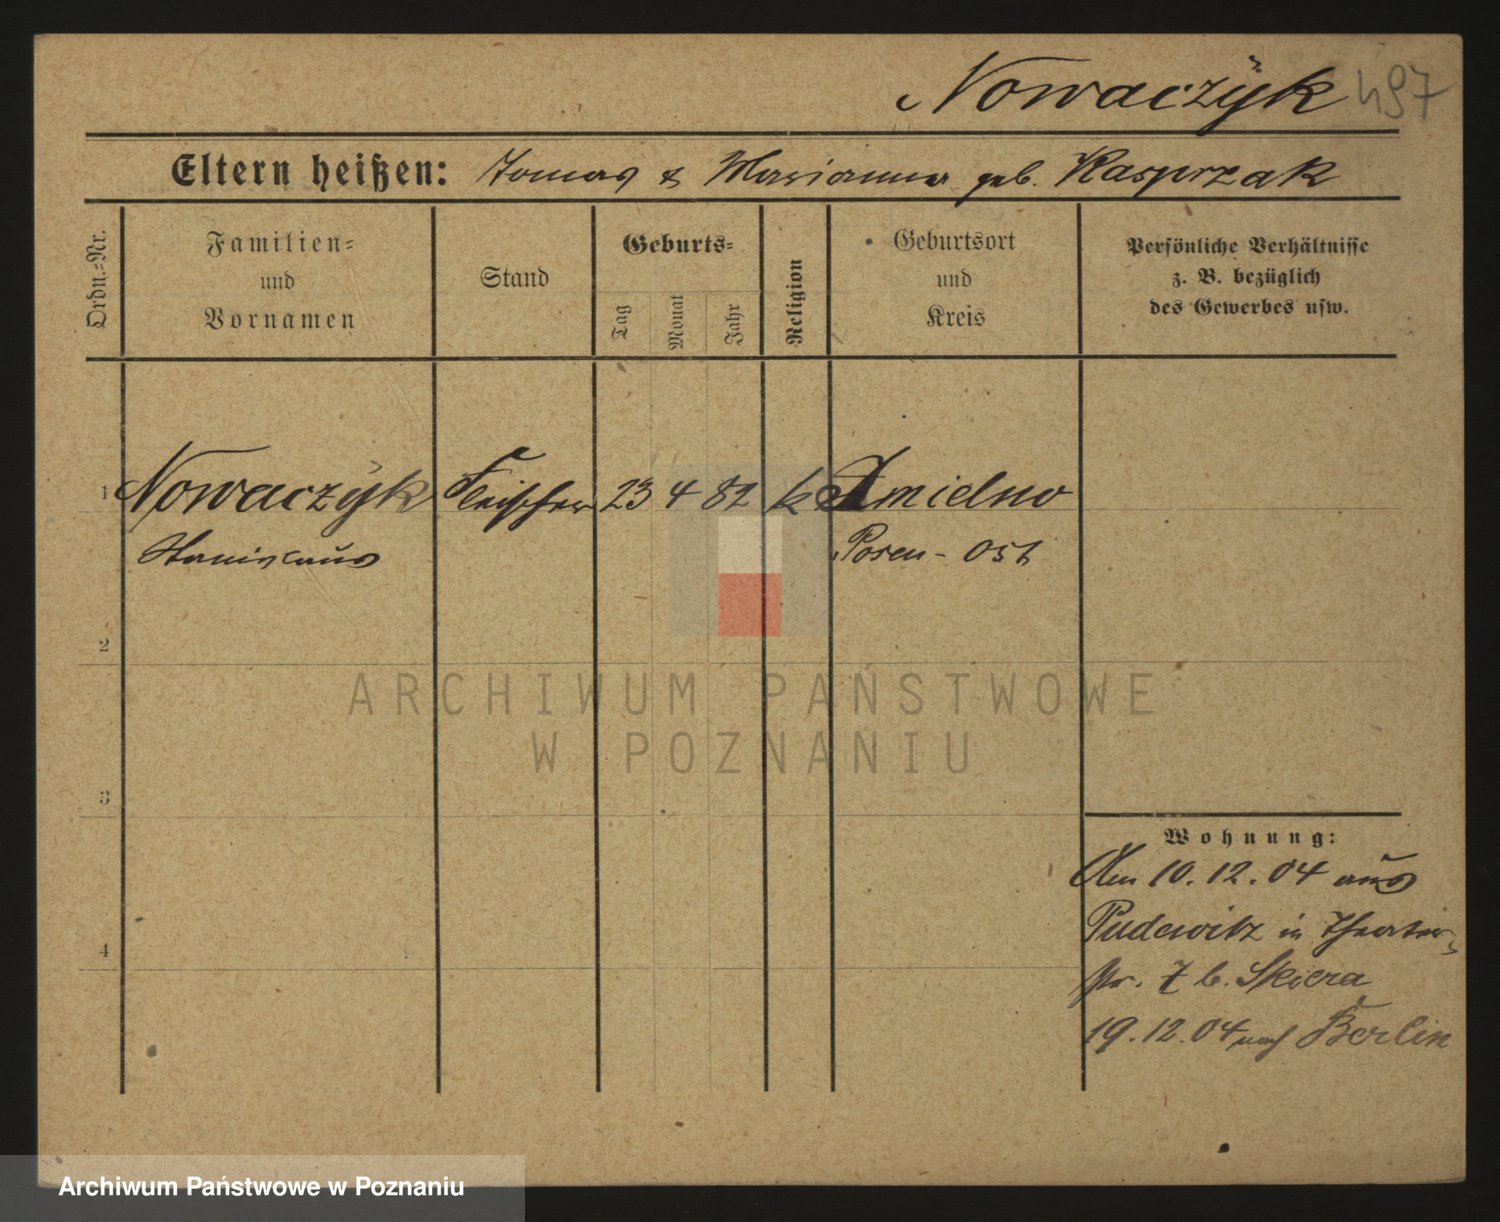 Nowaczyk 497
Eltern heißen: Tomas & Marianna geb. Kasprzak
Ordn.-Nr.
Familien-
und
Vornamen
Stand
Geburts-
Tag
Monat
Jahr
Religion
Geburtsort
und
Kreis
Persönliche Verhältnisse
z. B. bezüglich
des Gewerbes usw.
1 Nowaczyk Fleischer 23 4 82 k Jmielno
Stanislaus Posen-Ost
2
3
4
Wohnung:
Am 10.12.04 aus
Pudewitz in Theater-
str. 7 b. Skiera
19.12.04 nach Berlin
ARCHIWUM PAŃSTWOWE
W POZNANIU
Archiwum Państwowe w Poznaniu